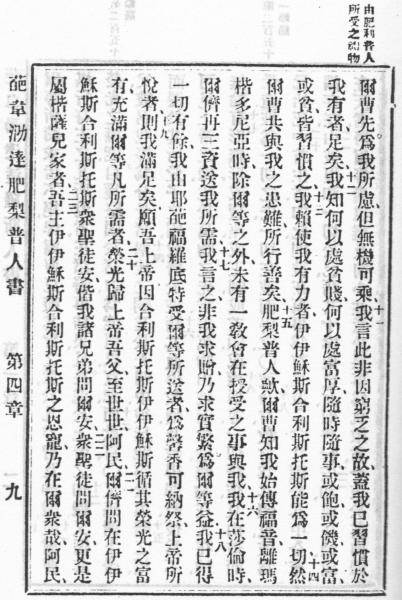 由肥利普人
所受之禮物
爾曹先為我所慮但無機可乘、十一我言此非因窮乏之故、蓋我已習慣於
我有者足矣、十二我知何以處貧賤、何以處富厚、隨時隨事、或飽或饑、或富
或貧皆習慣之、十三我賴使我有力者伊伊穌斯合利斯托斯能為一切、十四然
爾曹共與我之患難、所行善矣、十五肥梨普人歟、爾曹知我始傳福音、離瑪
楷多尼亞時、除爾等之外、未有一敎會、在授受之事與我、十六我在莎倫時、
爾儕再三資送我所需、十七我言之、非我求贈、乃求實繁為爾等益、十八我已得
一切有餘、我由耶葩福羅底特受爾等所送者、為馨香可納祭、上帝所
悅者、則我滿足矣、十九願吾上帝因合利斯托斯伊伊穌斯循其榮光之富
有、充滿爾等凡所需者、二十榮光歸上帝吾父至世世、阿民、二一爾儕問在伊伊
穌斯合利斯托斯衆聖徒安、偕我諸兄弟問爾安、二二衆聖徒問爾安、更是
屬楷薩兒家者、二三吾主伊伊穌斯合利斯托斯之恩寵、乃在爾衆哉、阿民、
葩韋泐達肥梨普人書 第四章 九